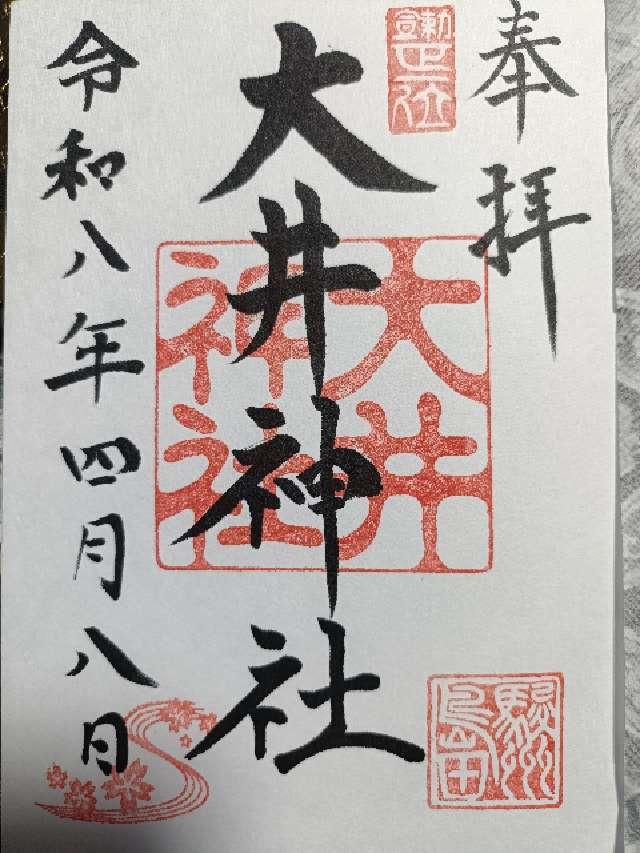 奉拝
勅宣正一位
大井神社
大井神社
駿州島田
令和八年四月八日